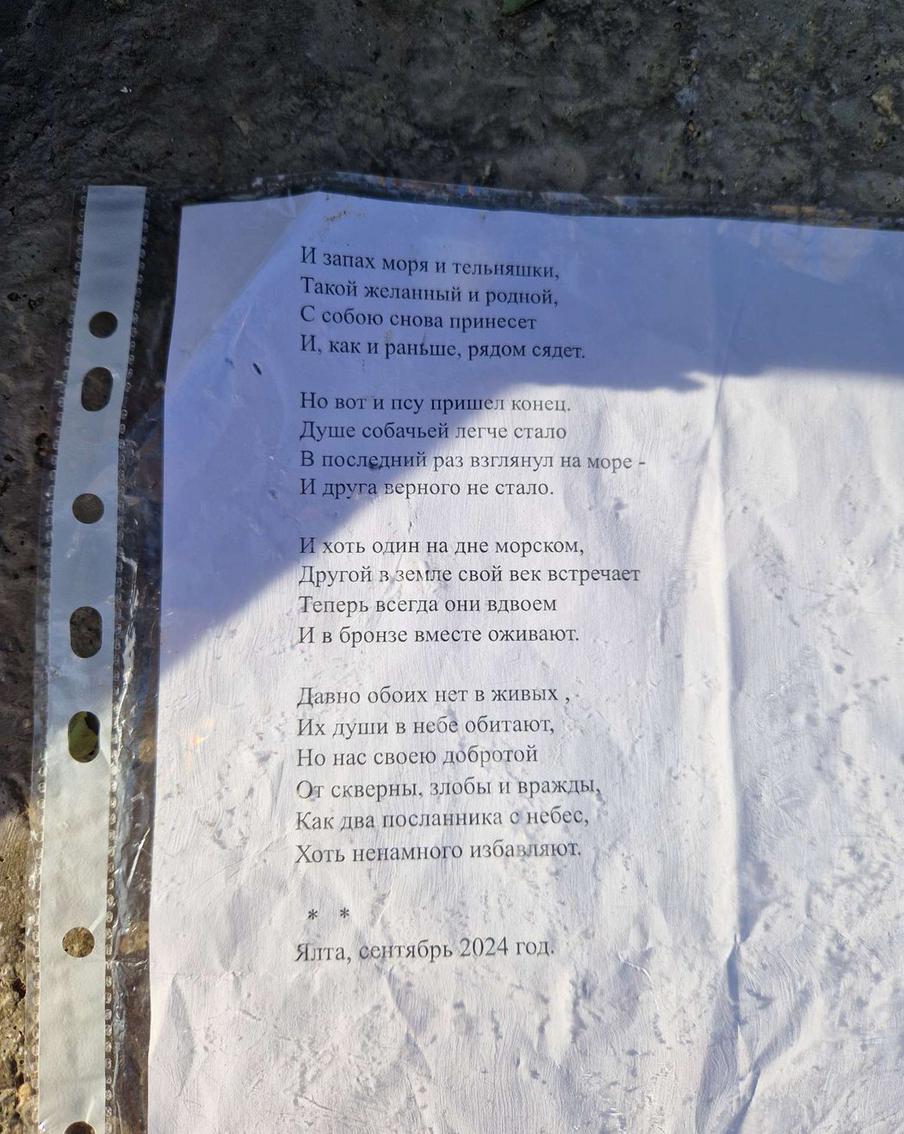 И запах моря и тельняшки,
Такой желанный и родной,
С собою снова принесет
И, как и раньше, рядом сядет.
Но вот и псу пришел конец.
Душе собачьей легче стало
В последний раз взглянул на море -
И друга верного не стало.
И хоть один на дне морском,
Другой в земле свой век встречает
Теперь всегда они вдвоем
И в бронзе вместе оживают.
Давно обоих нет в живых ,
Их души в небе обитают,
Но нас своею добротой
От скверны, злобы и вражды,
Как два посланника с небес,
Хоть ненамного избавляют.
* *
Ялта, сентябрь 2024 год.